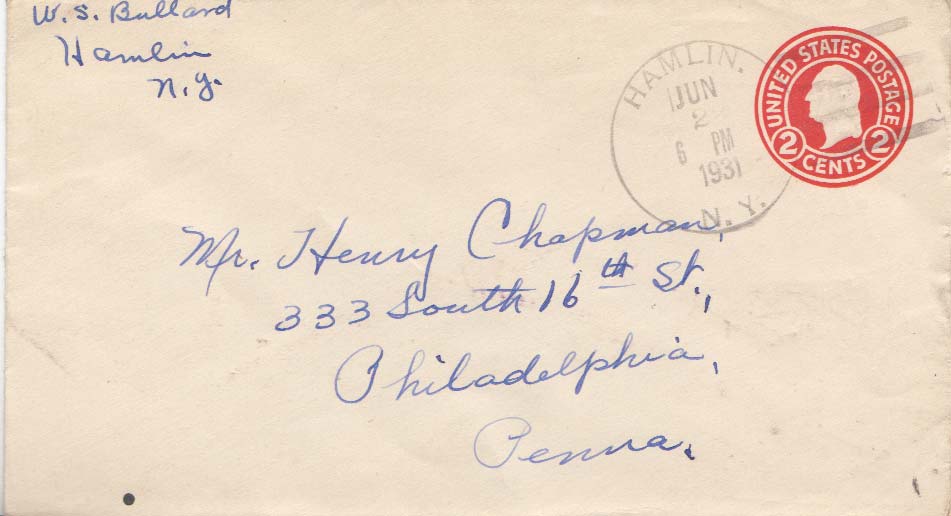 W. S. Bullard
Hamlin
N.Y.
HAMLIN.
JUN
2
6 PM
1931
N. Y.
UNITED STATES POSTAGE
2 CENTS 2
Mr. Henry Chapman,
333 South 16th St.,
Philadelphia,
Penna.